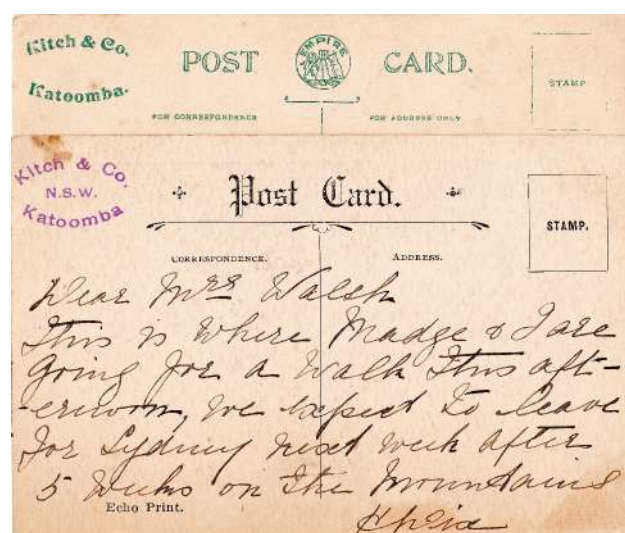 Kitch & Co.
Katoomba.
POST CARD.
EMPIRE
FOR CORRESPONDENCE
FOR ADDRESS ONLY
STAMP
Kitch & Co.
N.S.W.
Katoomba
Post Card.
STAMP.
CORRESPONDENCE.
ADDRESS.
Dear Mrs Walsh
This is where Madge & I are
going for a walk this aft-
-ernoon, we expect to leave
for Sydney next week after
5 weeks on the Mountains
Echo Print.